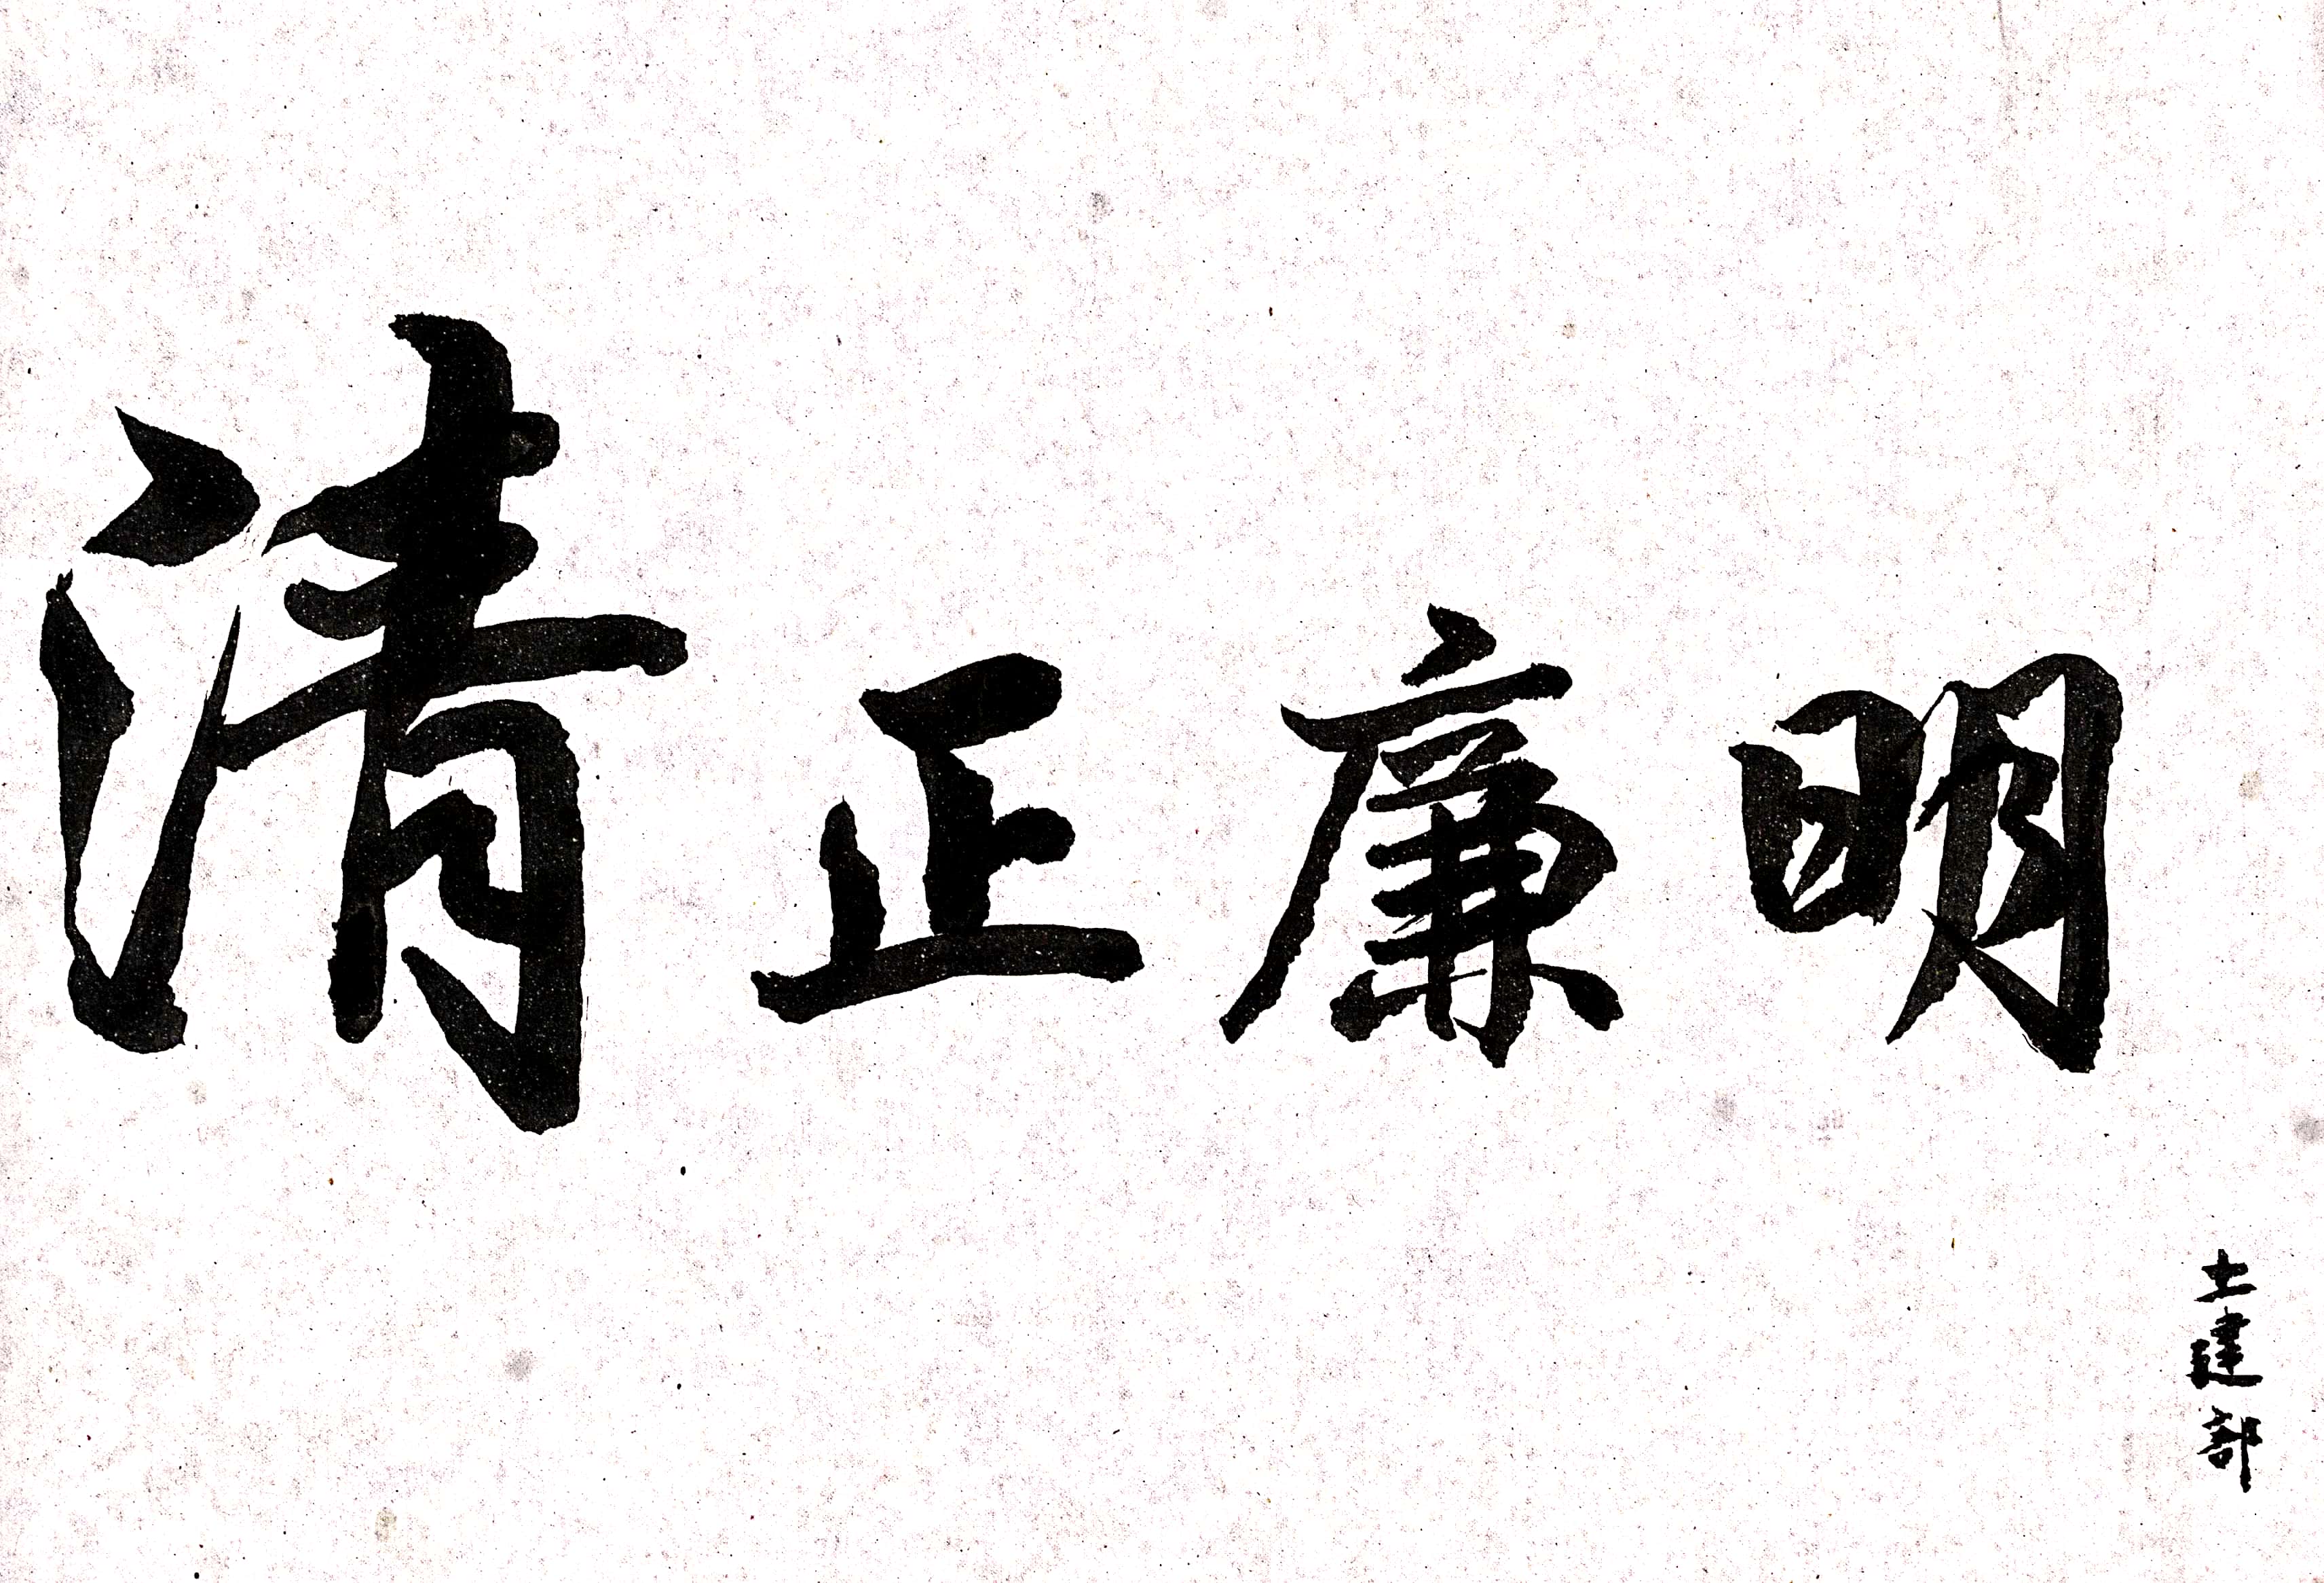 清正廉明
土建部